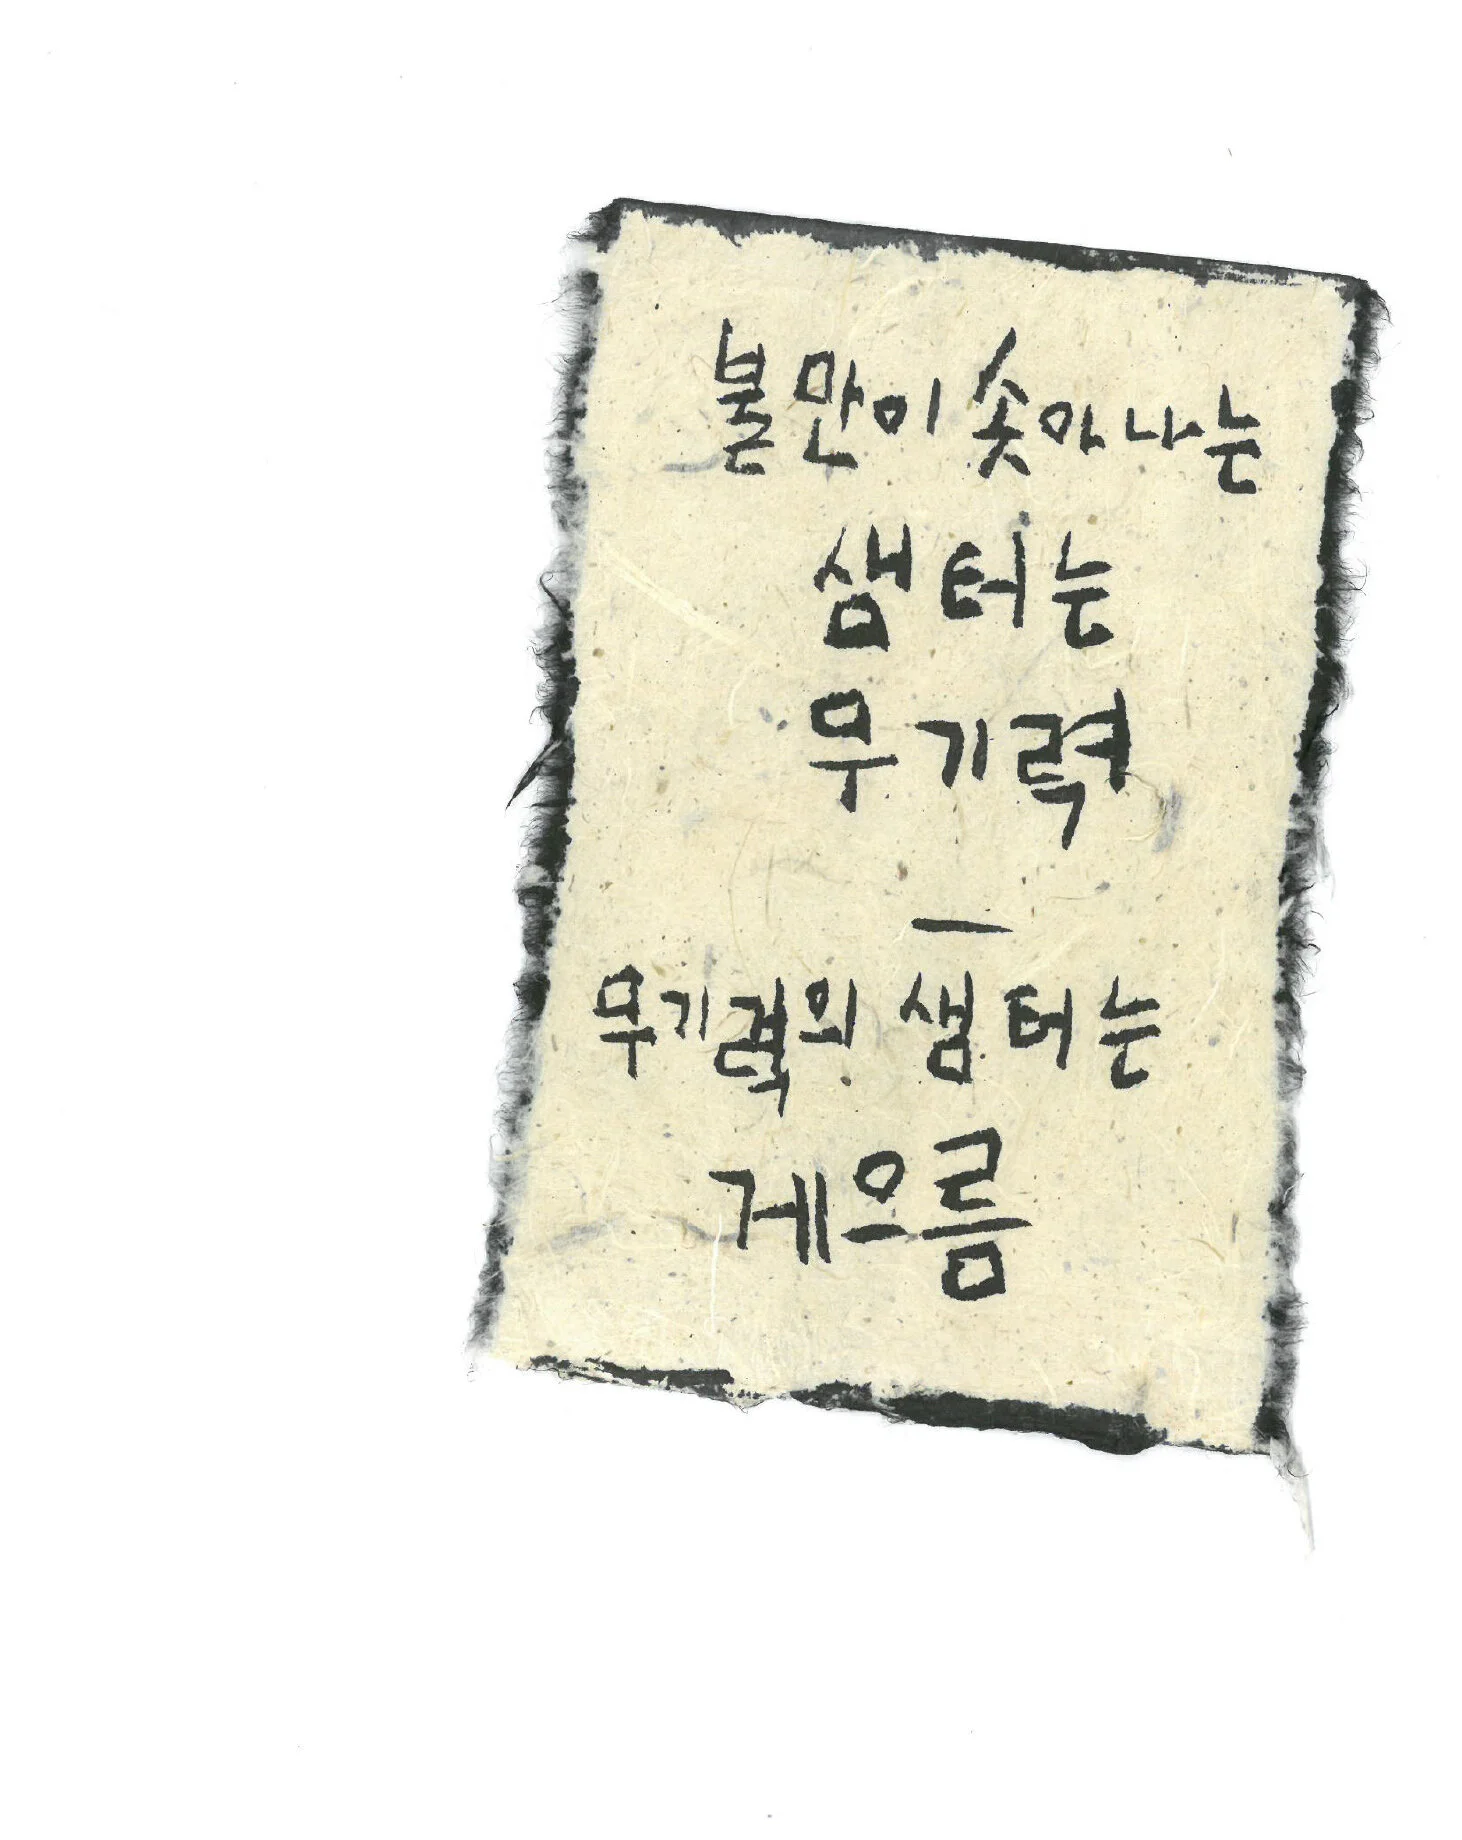 불만이 솟아나는
샘터는
무기력
—
무기력의 샘터는
게으름